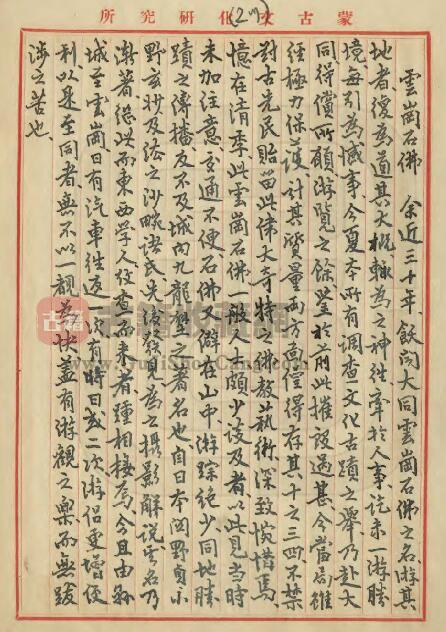 蒙古文化研究所
雲崗石佛　余近三十年飫聞大同雲崗石佛之名游其
地者復為道其大概輒為之神往牽於人事訖未一游勝
境每引為憾事今夏本所有調查文化古蹟之舉乃赴大
同得償所願游覽之餘鑒於前此摧毀過甚今當局雖
經極力保護計其質量兩方尚僅得存其十之三四不禁
對古先民貽留此偉大奇特之佛教藝術深致惋惜焉
憶在清季此雲崗石佛一般人士頗少談及者以此見當時
未加注意交通不便石佛又僻在山中游踪絕少同地勝
蹟之傳播反不及城內九龍壁之著名也自日本岡野貞小
野玄妙及法之沙畹諸氏先後發見為之攝影解說雲名乃
漸著從此而東西學人考查而來者踵相接焉今且由縣
城至雲崗日有汽車往返一次有時日或二次游侶更增便
利以是至同者無不以一覩為快蓋有游觀之樂而無跋
涉之苦也
古籍